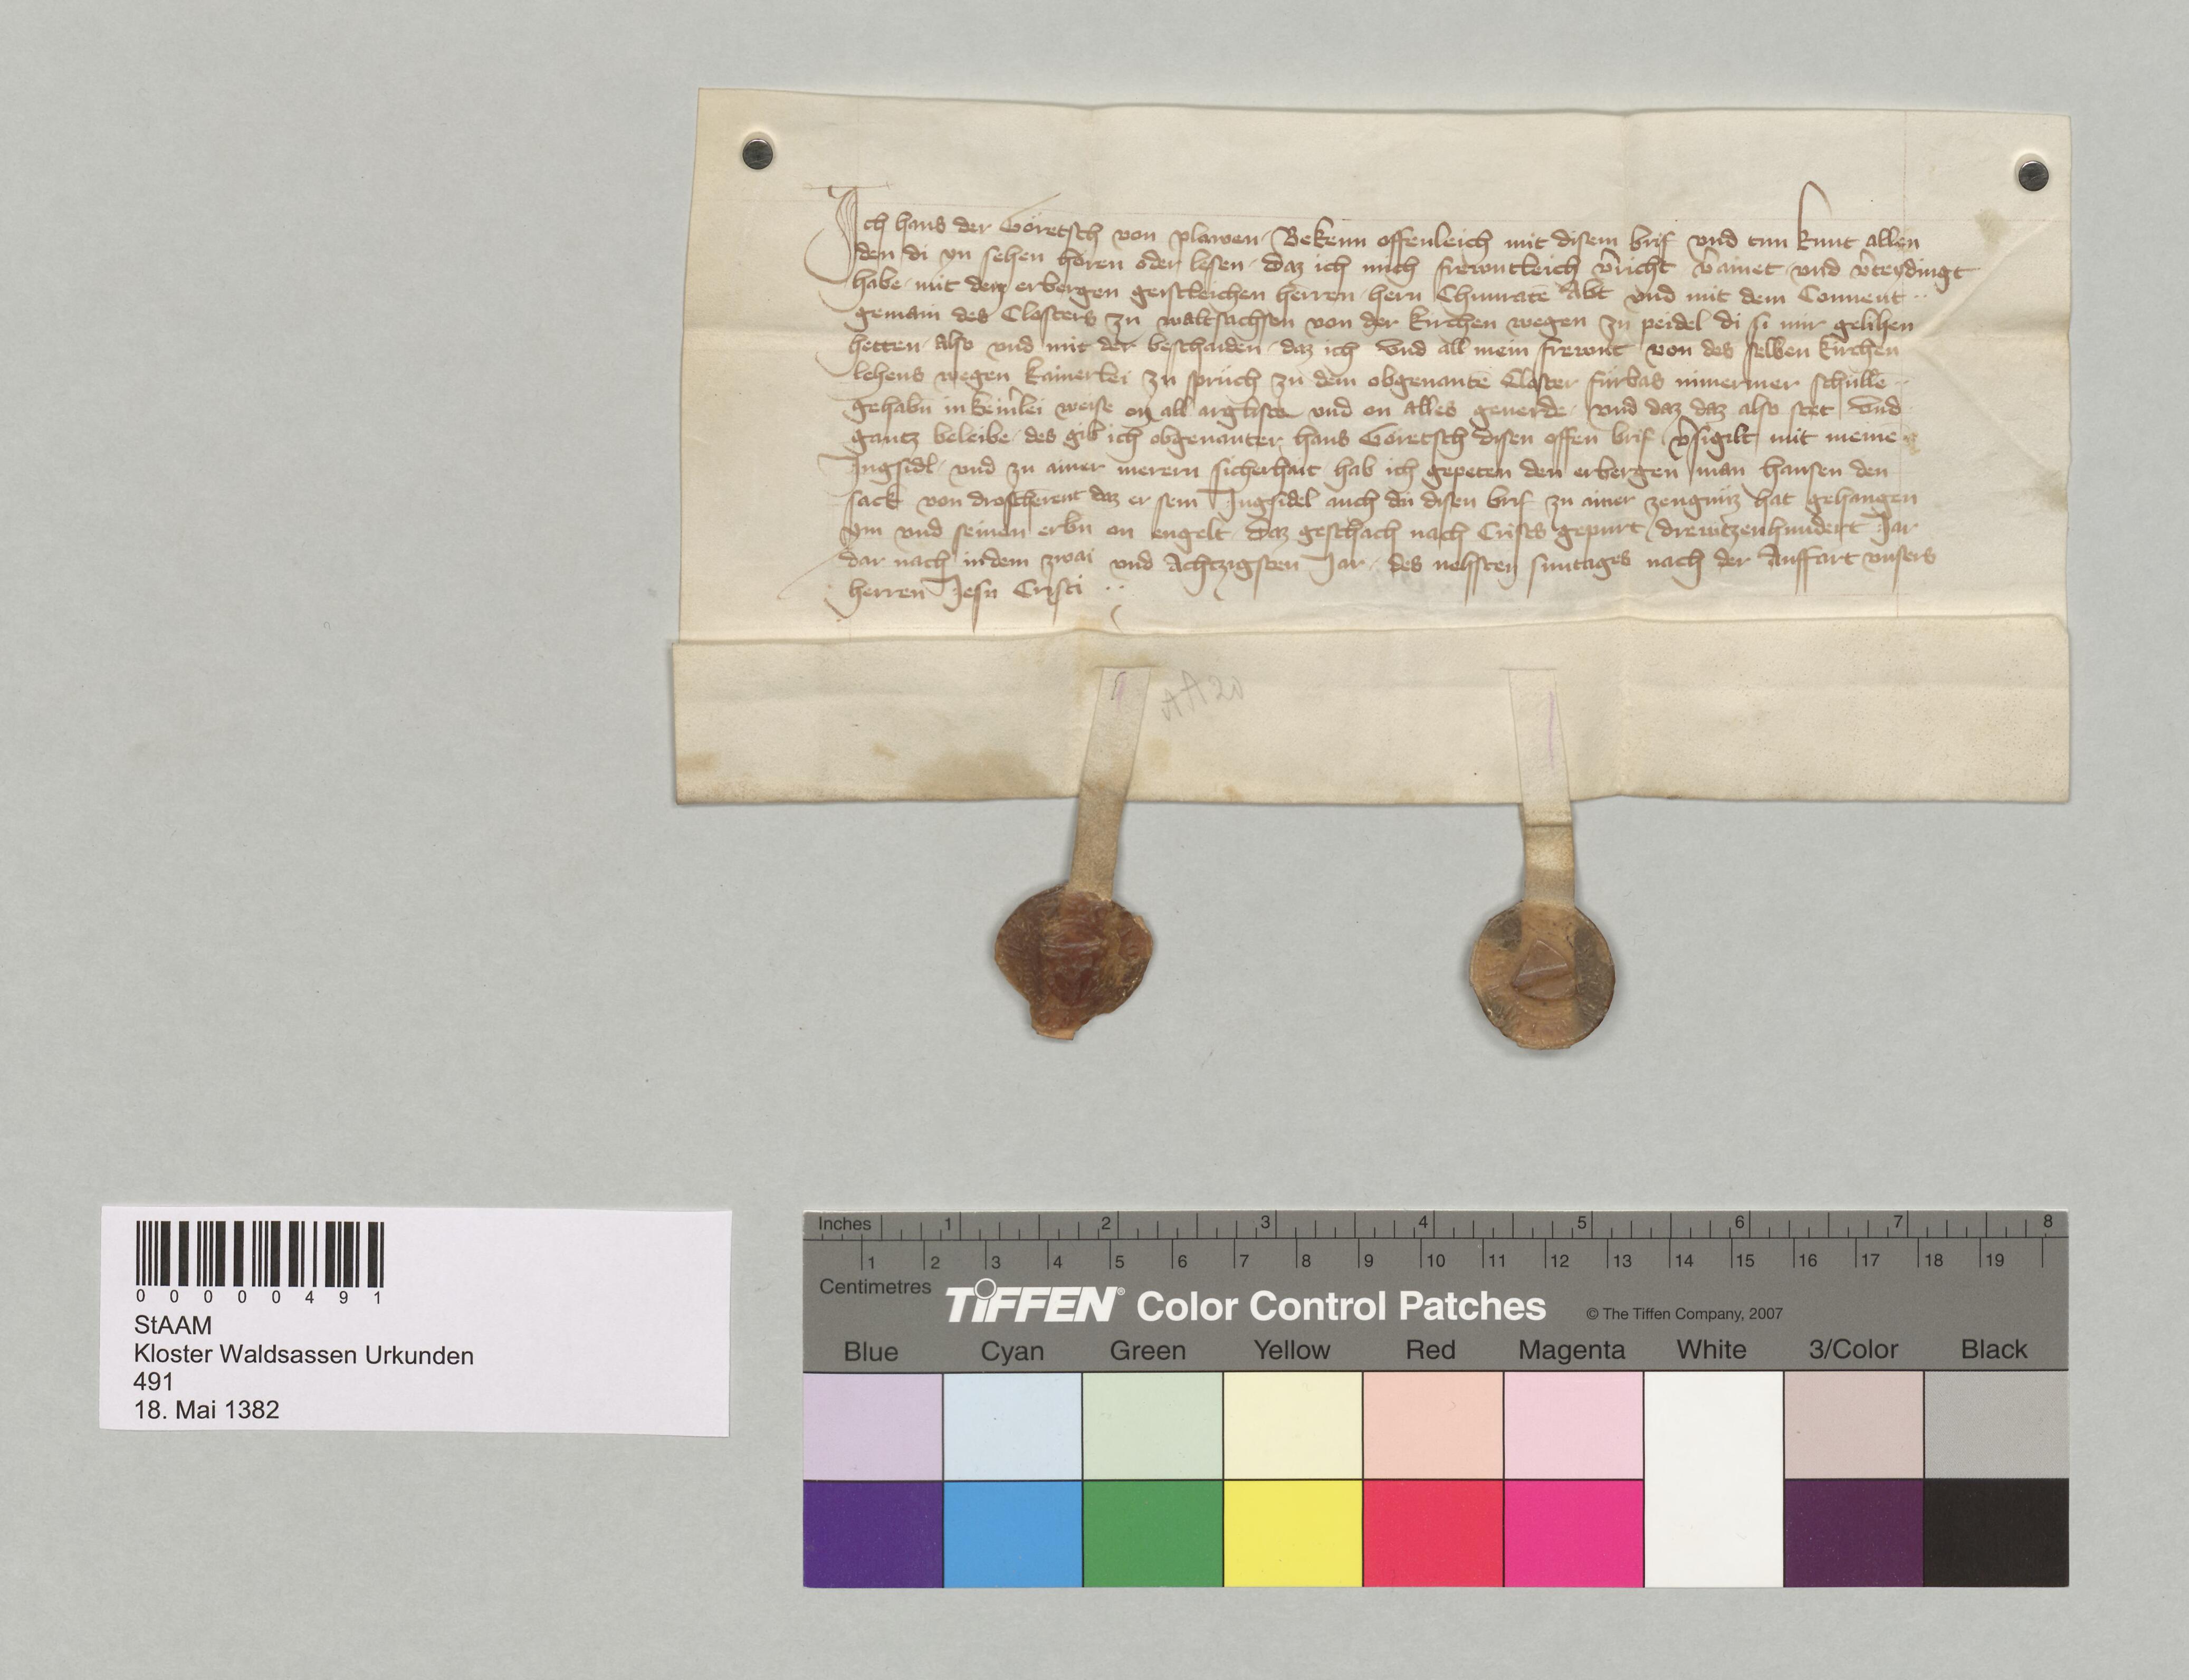 Ich hans der Göretsch von plawen Bekenn offenleich mit disem brif vnd tun kunt allen
den di yn sehen hören oder lesen daz ich mich frewntleich v̓richt v̓ainet vnd v̓teydingt
habe mit dem erbergen geistleichen herren hern Chunratē Abt vnd mit dem Conuent ..
gemain des Closters zu waltsachsen von der kirchen wegen zu peidel di si mir gelihen
hetten also vnd mit der beschaiden daz ich vnd all mein frewnt von des selben kirchen
lehens wegen kainerlei zu spruch zu dem obgenantē Closter fürbas nimermer schüllē ..
gehabn in kein̓lei weise on all arglist vnd on alles geuerde vnd daz daz also stet vnd
gantz beleibe des gib ich obgenanter hans Göretsch disen offen brif v̓sigilt mit meinē
Ingsidl vnd zu ainer merern sicherhait hab ich gepeten den erbergen man hansen den
sack von droscherent daz er sein Ingsidel auch an disen brif zu ainer zeugnüz hat gehangen
ym vnd seinen erbn on engelt daz geschach nach Crists gepurt drewtzenhundert Jar
dar nach in dem zwai vnd Achtzigsten Jar des nehsten suntages nach der Auffart vnsers
herren Jesu Cristi ..
AA20
0 0 0 0 0 4 9 1
StAAM
Kloster Waldsassen Urkunden
491
18. Mai 1382
Inches 1 2 3 4 5 6 7 8
1 2 3 4 5 6 7 8 9 10 11 12 13 14 15 16 17 18 19
Centimetres
TIFFEN® Color Control Patches © The Tiffen Company, 2007
Blue Cyan Green Yellow Red Magenta White 3/Color Black